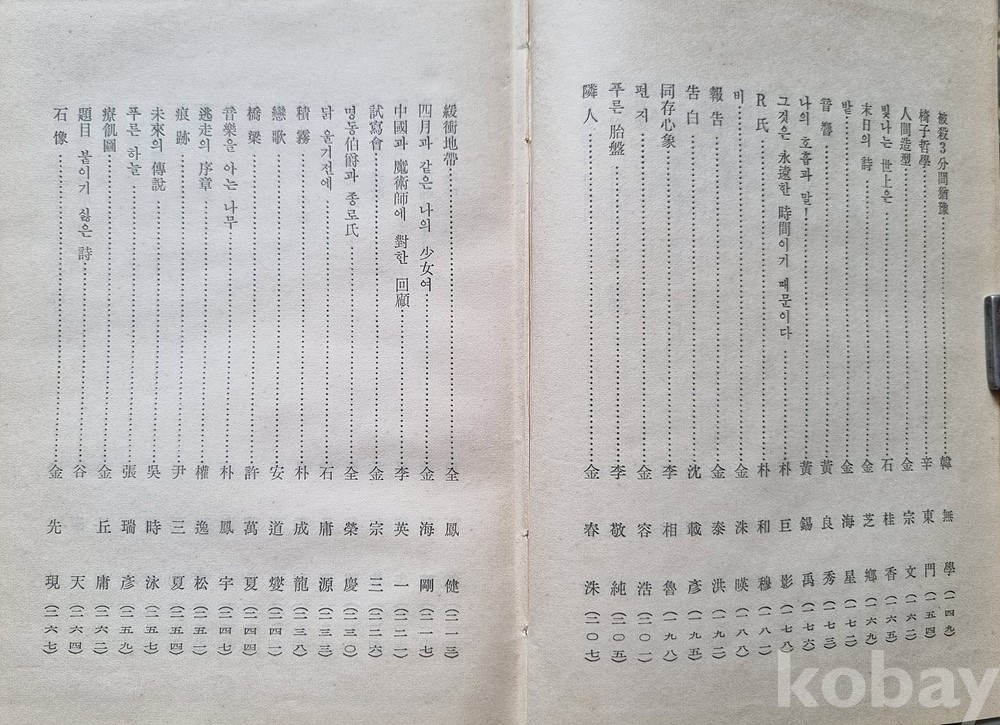 被殺3分間猶豫 韓無學 (一四九)
椅子哲學 辛東門 (一五四)
人間造型 金宗文 (一六二)
빛나는 世上은 石桂香 (一六五)
末日의 詩 金芝鄕 (一六九)
발 金海星 (一七二)
音響 黃良秀 (一七三)
나의 호흡과 말! 黃錫禹 (一七六)
그것은 永遠한 時間이기 때문이다 朴巨影 (一七八)
R氏 朴和穆 (一八一)
비 金洙暎 (一八八)
報告 金泰洪 (一九二)
告白 沈載彥 (一九五)
同存心象 李相魯 (一九八)
편지 金容浩 (二〇一)
푸른 胎盤 李敬純 (二〇五)
隣人 金春洙 (二〇七)
緩衝地帶 全鳳健 (二一三)
四月과 같은 나의 少女여 金海剛 (二一七)
中國과 魔術師에 對한 回顧 李英一 (二二一)
試寫會 金宗三 (二二六)
명동伯爵과 종로氏 全榮慶 (二三〇)
닭 울기전에 石庸源 (二三三)
積霧 朴成龍 (二三八)
戀歌 安道燮 (二四一)
橋梁 許萬夏 (二四四)
音樂을 아는 나무 朴鳳宇 (二四七)
逃走의 序章 權逸松 (二五一)
痕跡 尹三夏 (二五四)
未來의 傳說 吳時泳 (二五七)
푸른 하늘 張瑞彥 (二五九)
療飢圖 金丘庸 (二六二)
題目 붙이기 싫은 詩 谷天 (二六四)
石像 金先現 (二六七)
kobay